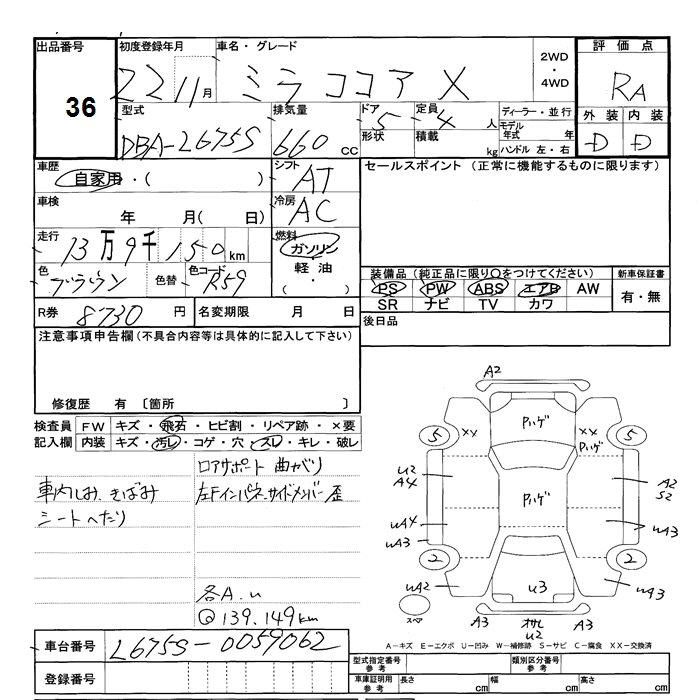 出品番号
36
初度登録年月
22 11月
車名・グレード
ミラココア X
2WD
・
4WD
評価点
RA
外装 内装
D D
型式
DBA-L675S
排気量
660 cc
ドア 5
形状
定員 4 人
積載 kg
ディーラー・並行
モデル年式 年
ハンドル 左・右
車歴
自家用・( )
シフト
AT
セールスポイント (正常に機能するものに限ります)
車検
年 月( 日)
冷房
AC
走行
13万9千150km
燃料
ガソリン
軽油
( ・ )
色
ブラウン
色替
色コード
R59
装備品 (純正品に限り○をつけてください)
新車保証書
PS PW ABS エアB AW
有・無
SR ナビ TV カワ
R券 8730 円
名変期限 月 日
後日品
注意事項申告欄(不具合内容等は具体的に記入して下さい)
修復歴 有 〔箇所 〕
検査員
記入欄
FW キズ・飛石・ヒビ割・リペア跡・×要
内装 キズ・汚レ・コゲ・穴・スレ・キレ・破レ
車内しみ、きばみ
シートへたり
ロアサポート 曲がり
左Fインパネ、サイドメンバー 歪
各A.U
@139.149km
A2
Pハゲ
5
XX
XX
Pハゲ
5
U2
A4
Pハゲ
A2
S2
UA4
UA3
UA3
2
2
UA2
U3
UA3
スペア
A3
U2
A3
A-キズ E-エクボ U-凹み W-補修跡 S-サビ C-腐食 XX-交換済
車台番号
L675S-0059062
登録番号
型式指定番号
参考
類別区分番号
参考
車庫証明用
参考
長さ cm
幅 cm
高さ cm